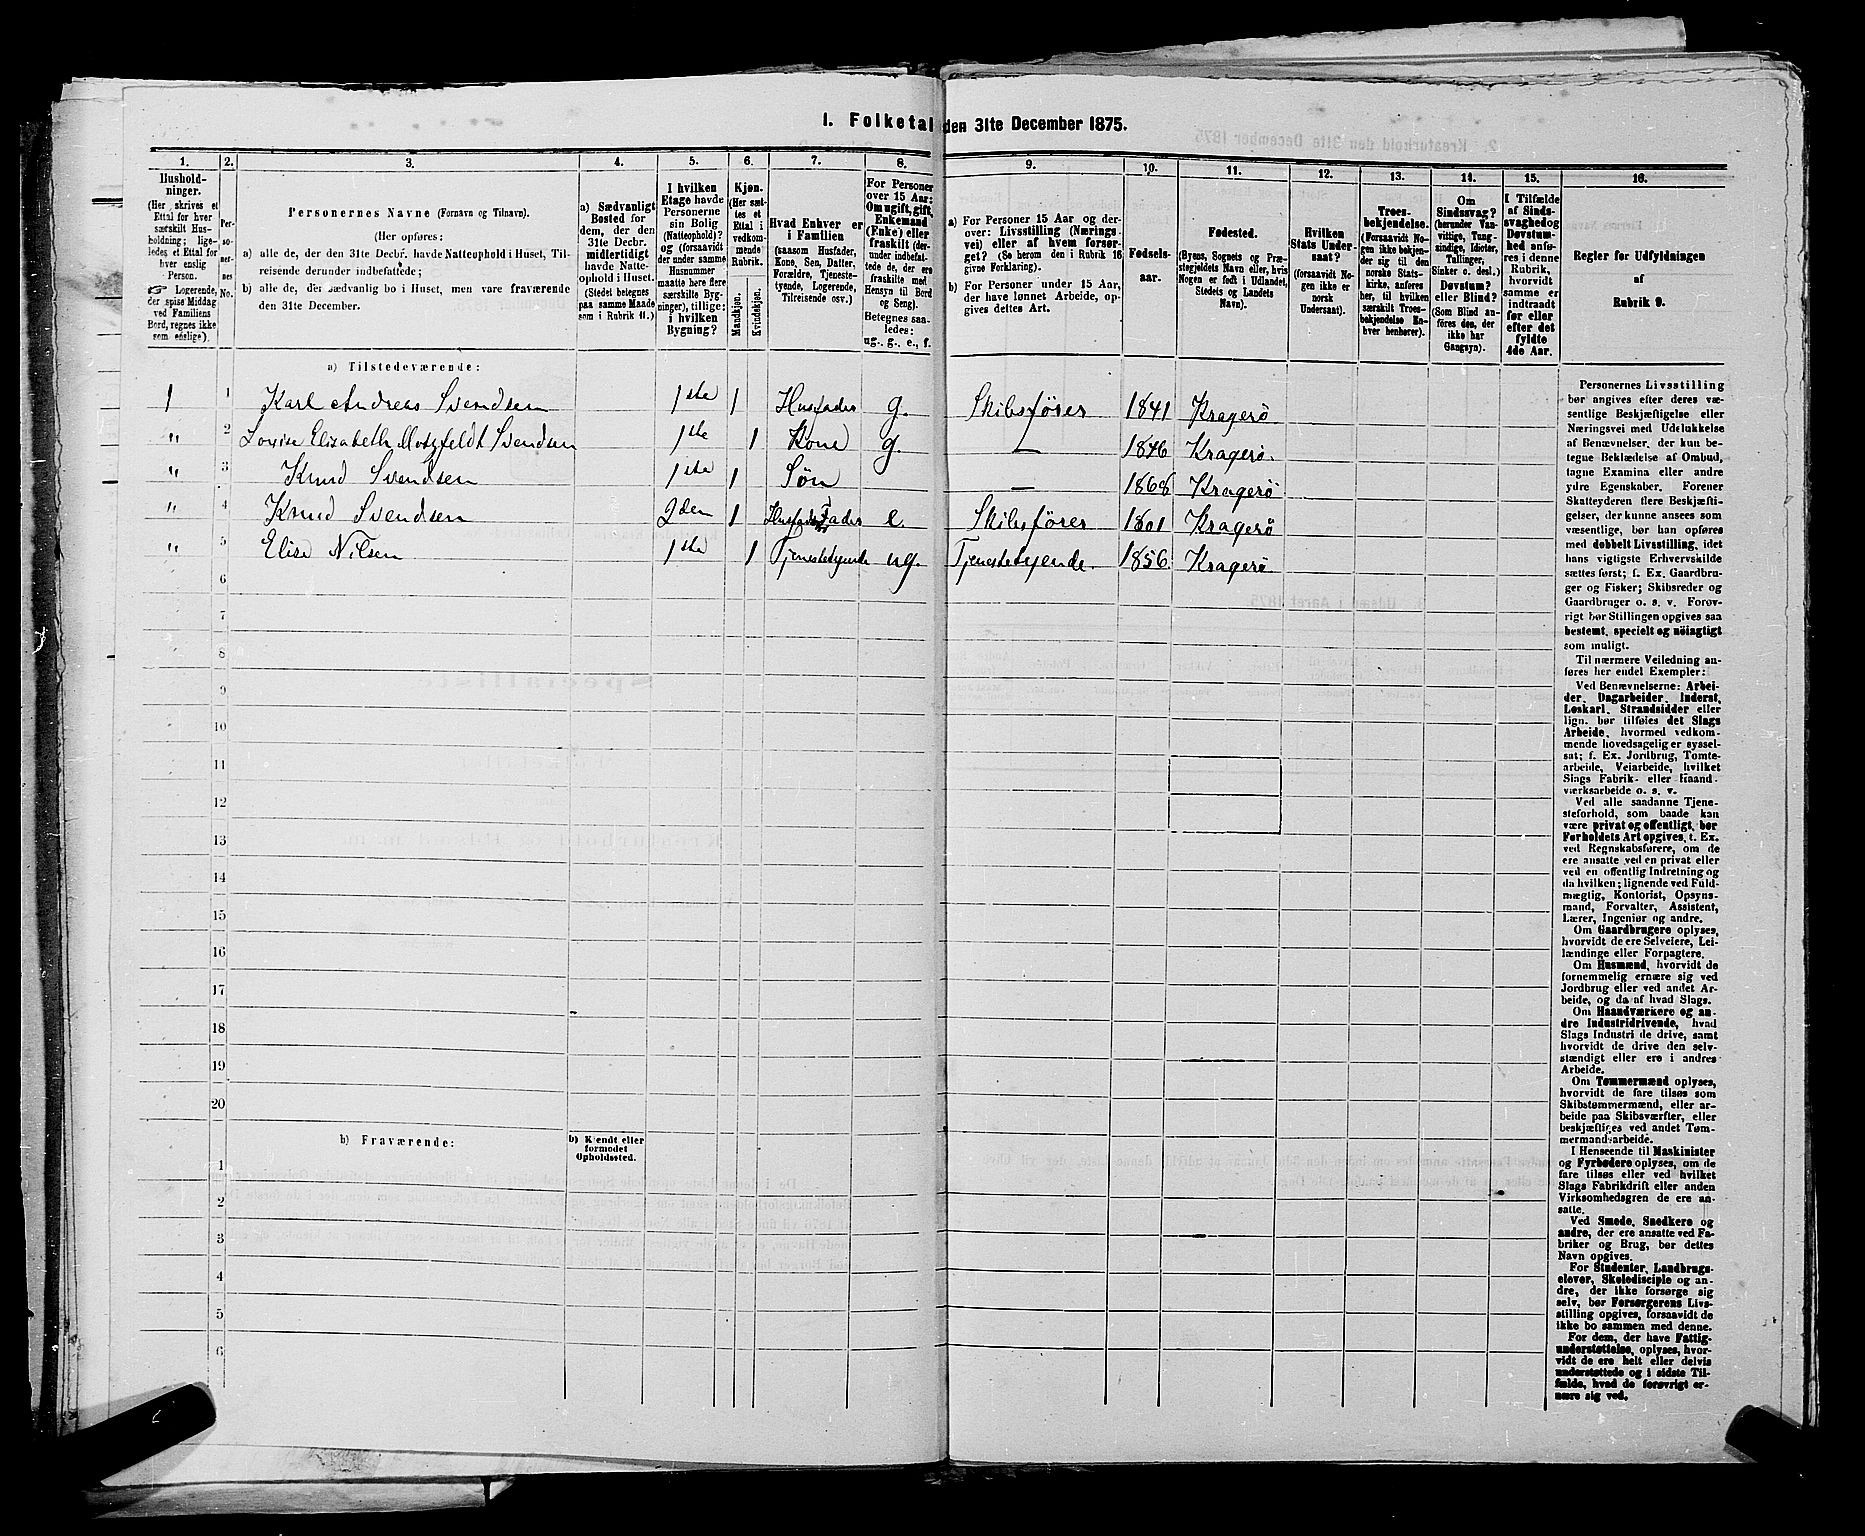 I. Folketal den 31te December 1875.
1. 2. 3. 4. 5. 6. 7. 8. 9. 10. 11. 12. 13. 14. 15. 16.
Hushold-
ninger.
(Her skrives et
Ettal for hver
særskilt Hus-
holdning; lige-
ledes et Ettal for
hver enslig
Person.
☞ Logerende,
der spise Middag
ved Familiens
Bord, regnes ikke
som enslige).
Per-
so-
ner-
nes
No.
Personernes Navne (Fornavn og Tilnavn).
(Her opføres:
a) alle de, der den 31te Decbr. havde Natteophold i Huset, Til-
reisende derunder indbefattede;
b) alle de, der sædvanlig bo i Huset, men vare fraværende
den 31te December.
a) Sædvanligt
Bosted for
dem, der den
31te Decbr.
midlertidigt
havde Natte-
ophold i Huset.
(Stedet betegnes
paa samme Maade
som i Rubrik 11.)
I hvilken
Etage havde
Personerne
sin Bolig
(Natteophold)?
og (forsaavidt
der under samme
Husnummer
maatte høre flere
særskilte Byg-
ninger), tillige:
i hvilken
Bygning?
Kjøn.
(Her sæt-
tes et
Ettal i
vedkom-
mende
Rubrik.
Mandkjøn.
Kvindekjøn.
Hvad Enhver er
i Familien
(saasom Husfader,
Kone, Søn, Datter,
Forældre, Tjeneste-
tyende, Logerende,
Tilreisende osv.)
For Personer
over 15 Aar:
Om ugift, gift,
Enkemand
(Enke) eller
fraskilt (der-
under indbefat-
tede de, der ere
fraskilte med
Hensyn til Bord
og Seng).
Betegnes saa-
ledes:
ug., g., e., f.
a) For Personer 15 Aar og der-
over: Livsstilling (Nærings-
vei) eller af hvem forsør-
get? (Se herom den i Rubrik 16
givne Forklaring).
b) For Personer under 15 Aar,
der have lønnet Arbeide, op-
gives dettes Art.
Fødsels-
aar.
Fødested.
(Byens, Sognets og Præ-
stegjeldets Navn eller, hvis
Nogen er født i Udlandet,
Stedets og Landets
Navn).
Hvilken
Stats Under-
saat?
(forsaavidt No-
gen ikke er
norsk
Undersaat).
Troes-
bekjendelse.
(Forsaavidt No-
gen ikke bekjen-
der sig til den
norske Stats-
kirke, anføres
her, til hvilken
særskilt Troes-
bekjendelse En-
hver henhører).
Om
Sindssvag?
(herunder Van-
vittige, Tung-
sindige, Idioter,
Tullinger,
Sinker o. desl.)
Døvstum?
eller Blind?
(Som Blind an-
føres den, der
ikke har
Gangsyn).
I Tilfælde
af Sinds-
svaghed og
Døvstum-
hed anfø-
res i denne
Rubrik,
hvorvidt
samme er
indtraadt
før eller
efter det
fyldte
4de Aar.
Regler for Udfyldningen
af
Rubrik 9.
a) Tilstedeværende:
1 1 Karl Andreas Svendsen 1ste 1 Husfader g. Skibsfører 1841 Kragerø
" 2 Lovise Elizabeth Motzfeldt Svendsen 1ste 1 Kone g. — 1846 Kragerø.
" 3 Knud Svendsen 1ste 1 Søn — 1868 Kragerø
" 4 Knud Svendsen 2den 1 Husfaders Fader e. Skibsfører 1801 Kragerø
" 5 Elise Nilsen 1ste 1 Tjenestetyende ug. Tjenestetyende. 1856 Kragerø
6
7
8
9
10
11
12
13
14
15
16
17
18
19
20
b) Fraværende: b) Kjendt eller
formodet
Opholdssted.
1
2
3
4
5
6
Personernes Livsstilling
bør angives efter deres væ-
sentlige Beskjæftigelse eller
Næringsvei med Udelukkelse
af Benævnelser, der kun be-
tegne Beklædelse af Ombud,
tagne Examina eller andre
ydre Egenskaber. Forener
Skatteyderen flere Beskjæfti-
gelser, der kunne ansees som
væsentlige, bør han opføres
med dobbelt Livsstilling, idet
hans vigtigste Erhvervskilde
sættes først; f. Ex. Gaardbru-
ger og Fisker; Skibsreder og
Gaardbruger o. s. v. Forøv-
rigt bør Stillingen opgives saa
bestemt, specielt og nöiagtigt
som muligt.
Til nærmere Veiledning an-
føres her endel Exempler:
Ved Benævnelserne: Arbei-
der, Dagarbeider, Inderst,
Løskarl, Strandsidder eller
lign. bør tilføies det Slags
Arbeide, hvormed vedkom-
mende hovedsagelig er syssel-
sat; f. Ex. Jordbrug, Tømte-
arbeide, Veiarbeide, hvilket
Slags Fabrik- eller Haand-
værksarbeide o. s. v.
Ved alle saadanne Tjene-
steforhold, som baade kan
være privat og offentligt, bør
Forholdets Art opgives, t. Ex.
ved Regnskabsførere, om de
ere ansatte ved en privat eller
ved en offentlig Indretning og
da hvilken; lignende ved Fuld-
mægtig, Kontorist, Opsyns-
mand, Forvalter, Assistent,
Lærer, Ingeniør og andre.
Om Gaardbrugere oplyses,
hvorvidt de ere Selveiere, Lei-
lændinge eller Forpagtere.
Om Husmænd, hvorvidt de
fornemmelig ernære sig ved
Jordbrug eller ved andet Ar-
beide, og da af hvad Slags.
Om Haandværkere og an-
dre Industridrivende, hvad
Slags Industri de drive, samt
hvorvidt de drive den selv-
stændigt eller ere i andres
Arbeide.
Om Tømmermænd oplyses,
hvorvidt de fare tilsøs som
Skibstømmermænd, eller ar-
beide paa Skibsværfter, eller
beskjæftiges ved andet Tøm-
mermandsarbeide.
I Henseende til Maskinister
og Fyrbødere oplyses, om de
fare tilsøs eller ved hvilket
Slags Fabrikdrift eller anden
Virksomhedsgren de ere an-
satte.
Ved Smede, Snedkere og
andre, der ere ansatte ved Fa-
briker og Brug, bør dettes
Navn opgives.
For Studenter, Landbrugs-
elever, Skoledisciple og an-
dre, der ikke forsørge sig
selv, bør Forsørgerens Livs-
stilling opgives, forsaavidt de
ikke bo sammen med denne.
For dem, der have Fattig-
understøttelse, oplyses, hvor-
vidt de ere helt eller delvis
understøttede og i sidste Til-
fælde, hvad de forøvrigt er-
nære sig ved.